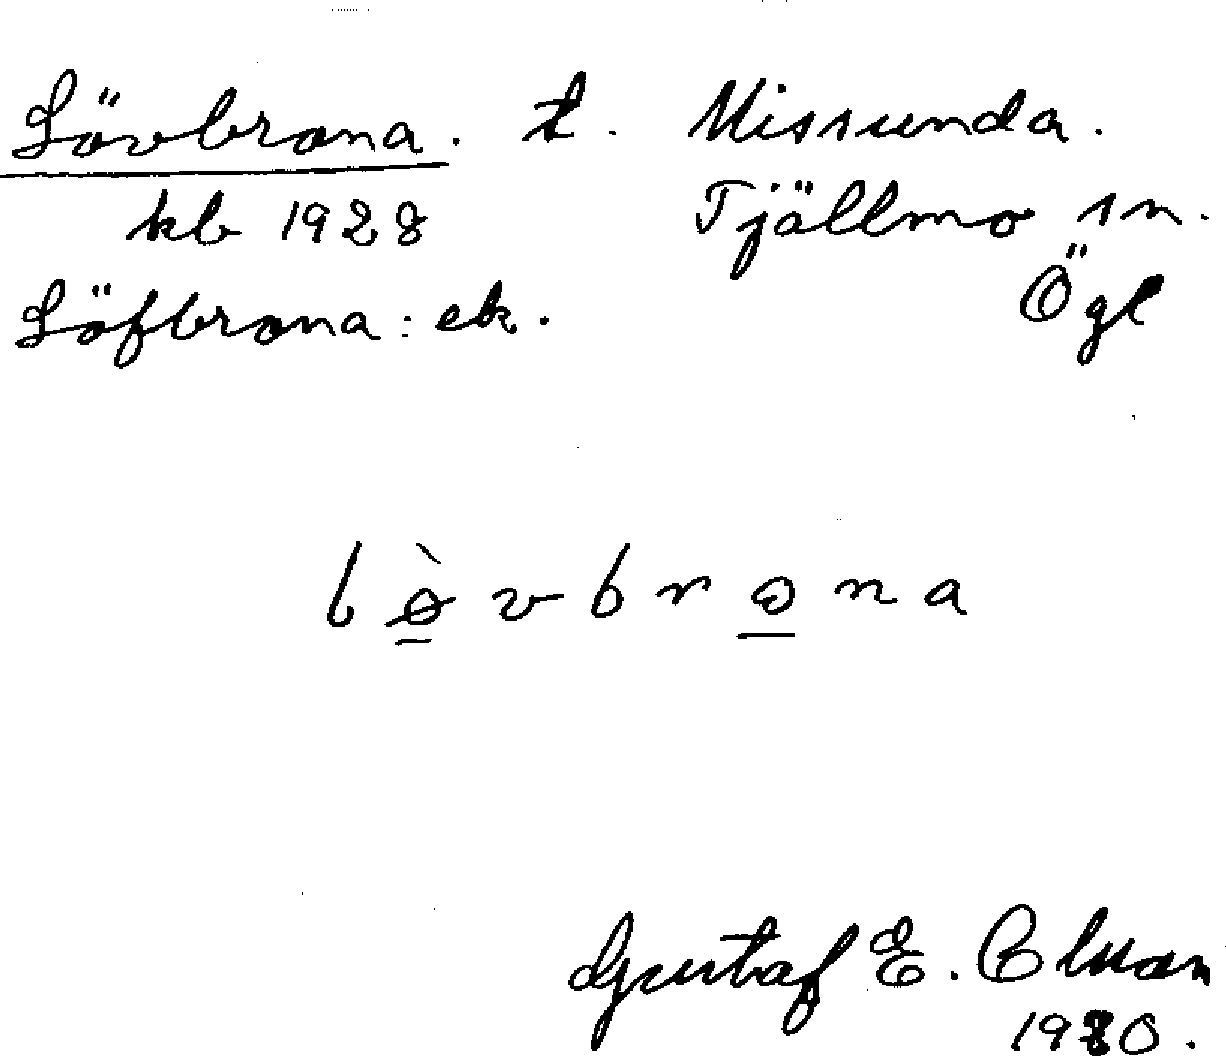 Lövbrona. t. Missunda.
kb 1928 Tjällmo sn.
Löfbrona: ek. Ögl
lø̀vbrona
Gustaf E.
1930.